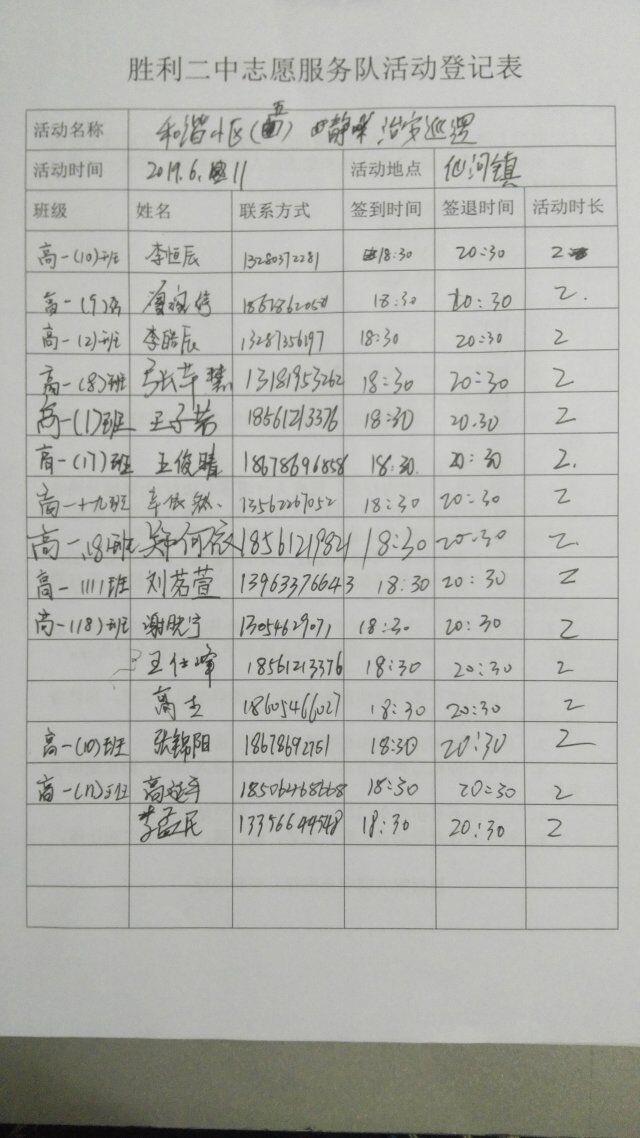 胜利二中志愿服务队活动登记表
活动名称 和谐小区(五) 治安巡逻
活动时间 2019.6.11 活动地点 仙河镇
班级 姓名 联系方式 签到时间 签退时间 活动时长
高一(10)班 李恒辰 13280372281 18:30 20:30 2
高一(9)班 18:30 20:30 2.
高一(2)班 李皓辰 13287356197 18:30 20:30 2
高一(8)班 张苹慧 13181953262 18:30 20:30 2
高一(1)班 王子若 18561213376 18:30 20.30 2
高一(17)班 王俊晴 18678696858 18:30. 20:30 2.
高一十九班 13562267052 18:30 20:30 2
高一(18)班 郑何欣 18561219821 18:30 20:30 2
高一(11)班 刘茗萱 13963376643 18:30 20:30 2
高一(18)班 谢晓宁 13054629071 18:30 20:30 2
王仕峰 18561213376 18:30 20:30 2
高士 18605466027 18:30 20:30 2
高一(10)班 张锦阳 18678692751 18:30 20:30 2
高一(17)班 18506468668 18:30 20:30 2
李孟民 13356644548 18:30 20:30 2